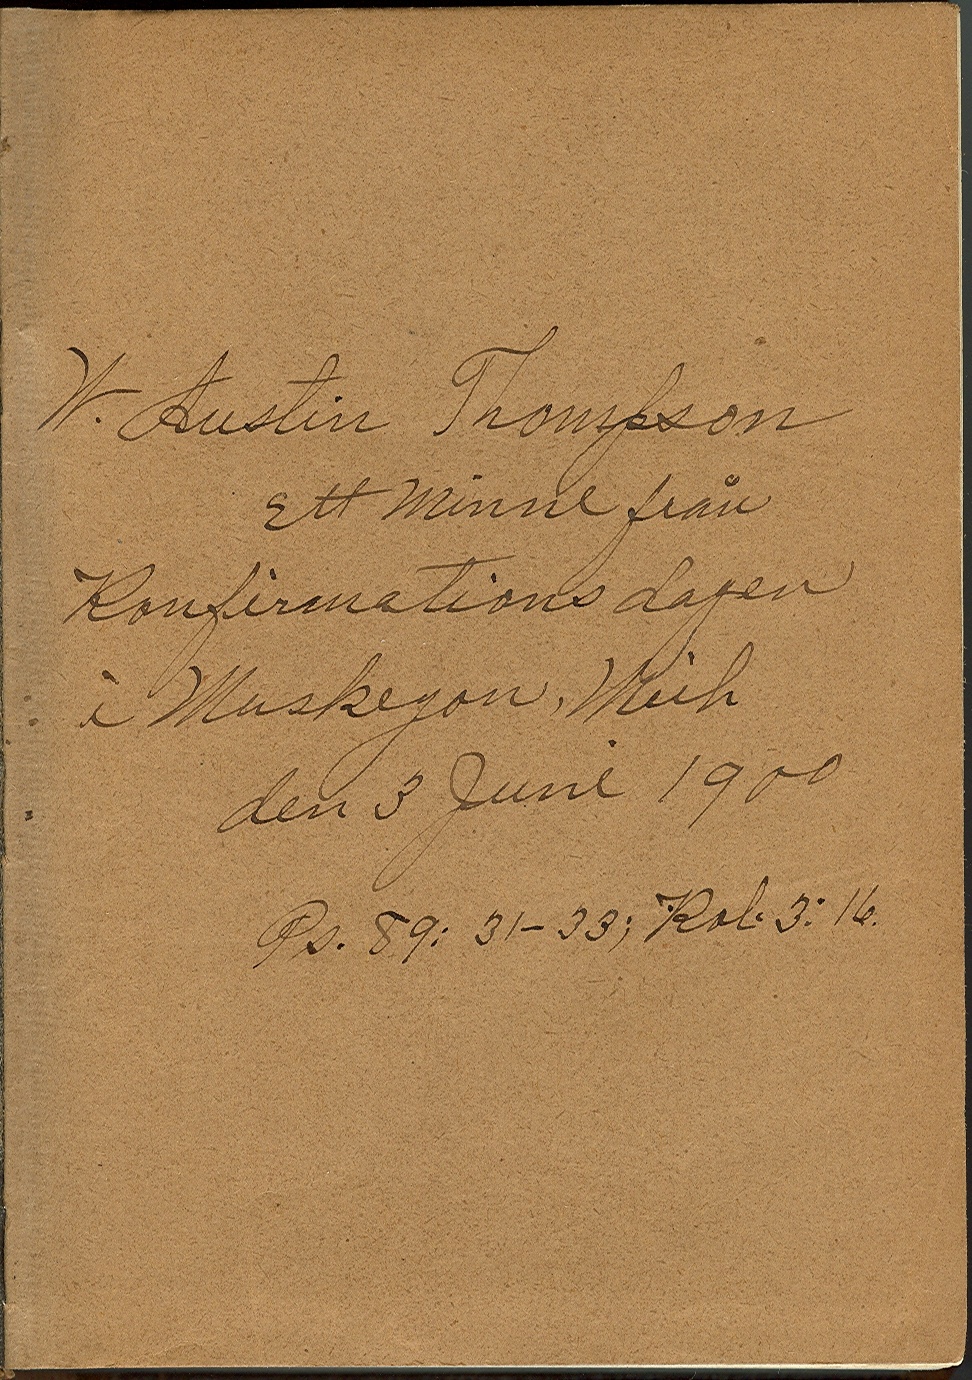 W. Austin Thompson
Ett Minne från
Konfirmations dagen
i Muskegon, Mich
den 3 Juni 1900
Ps. 89: 31-33; Kol. 3: 16.